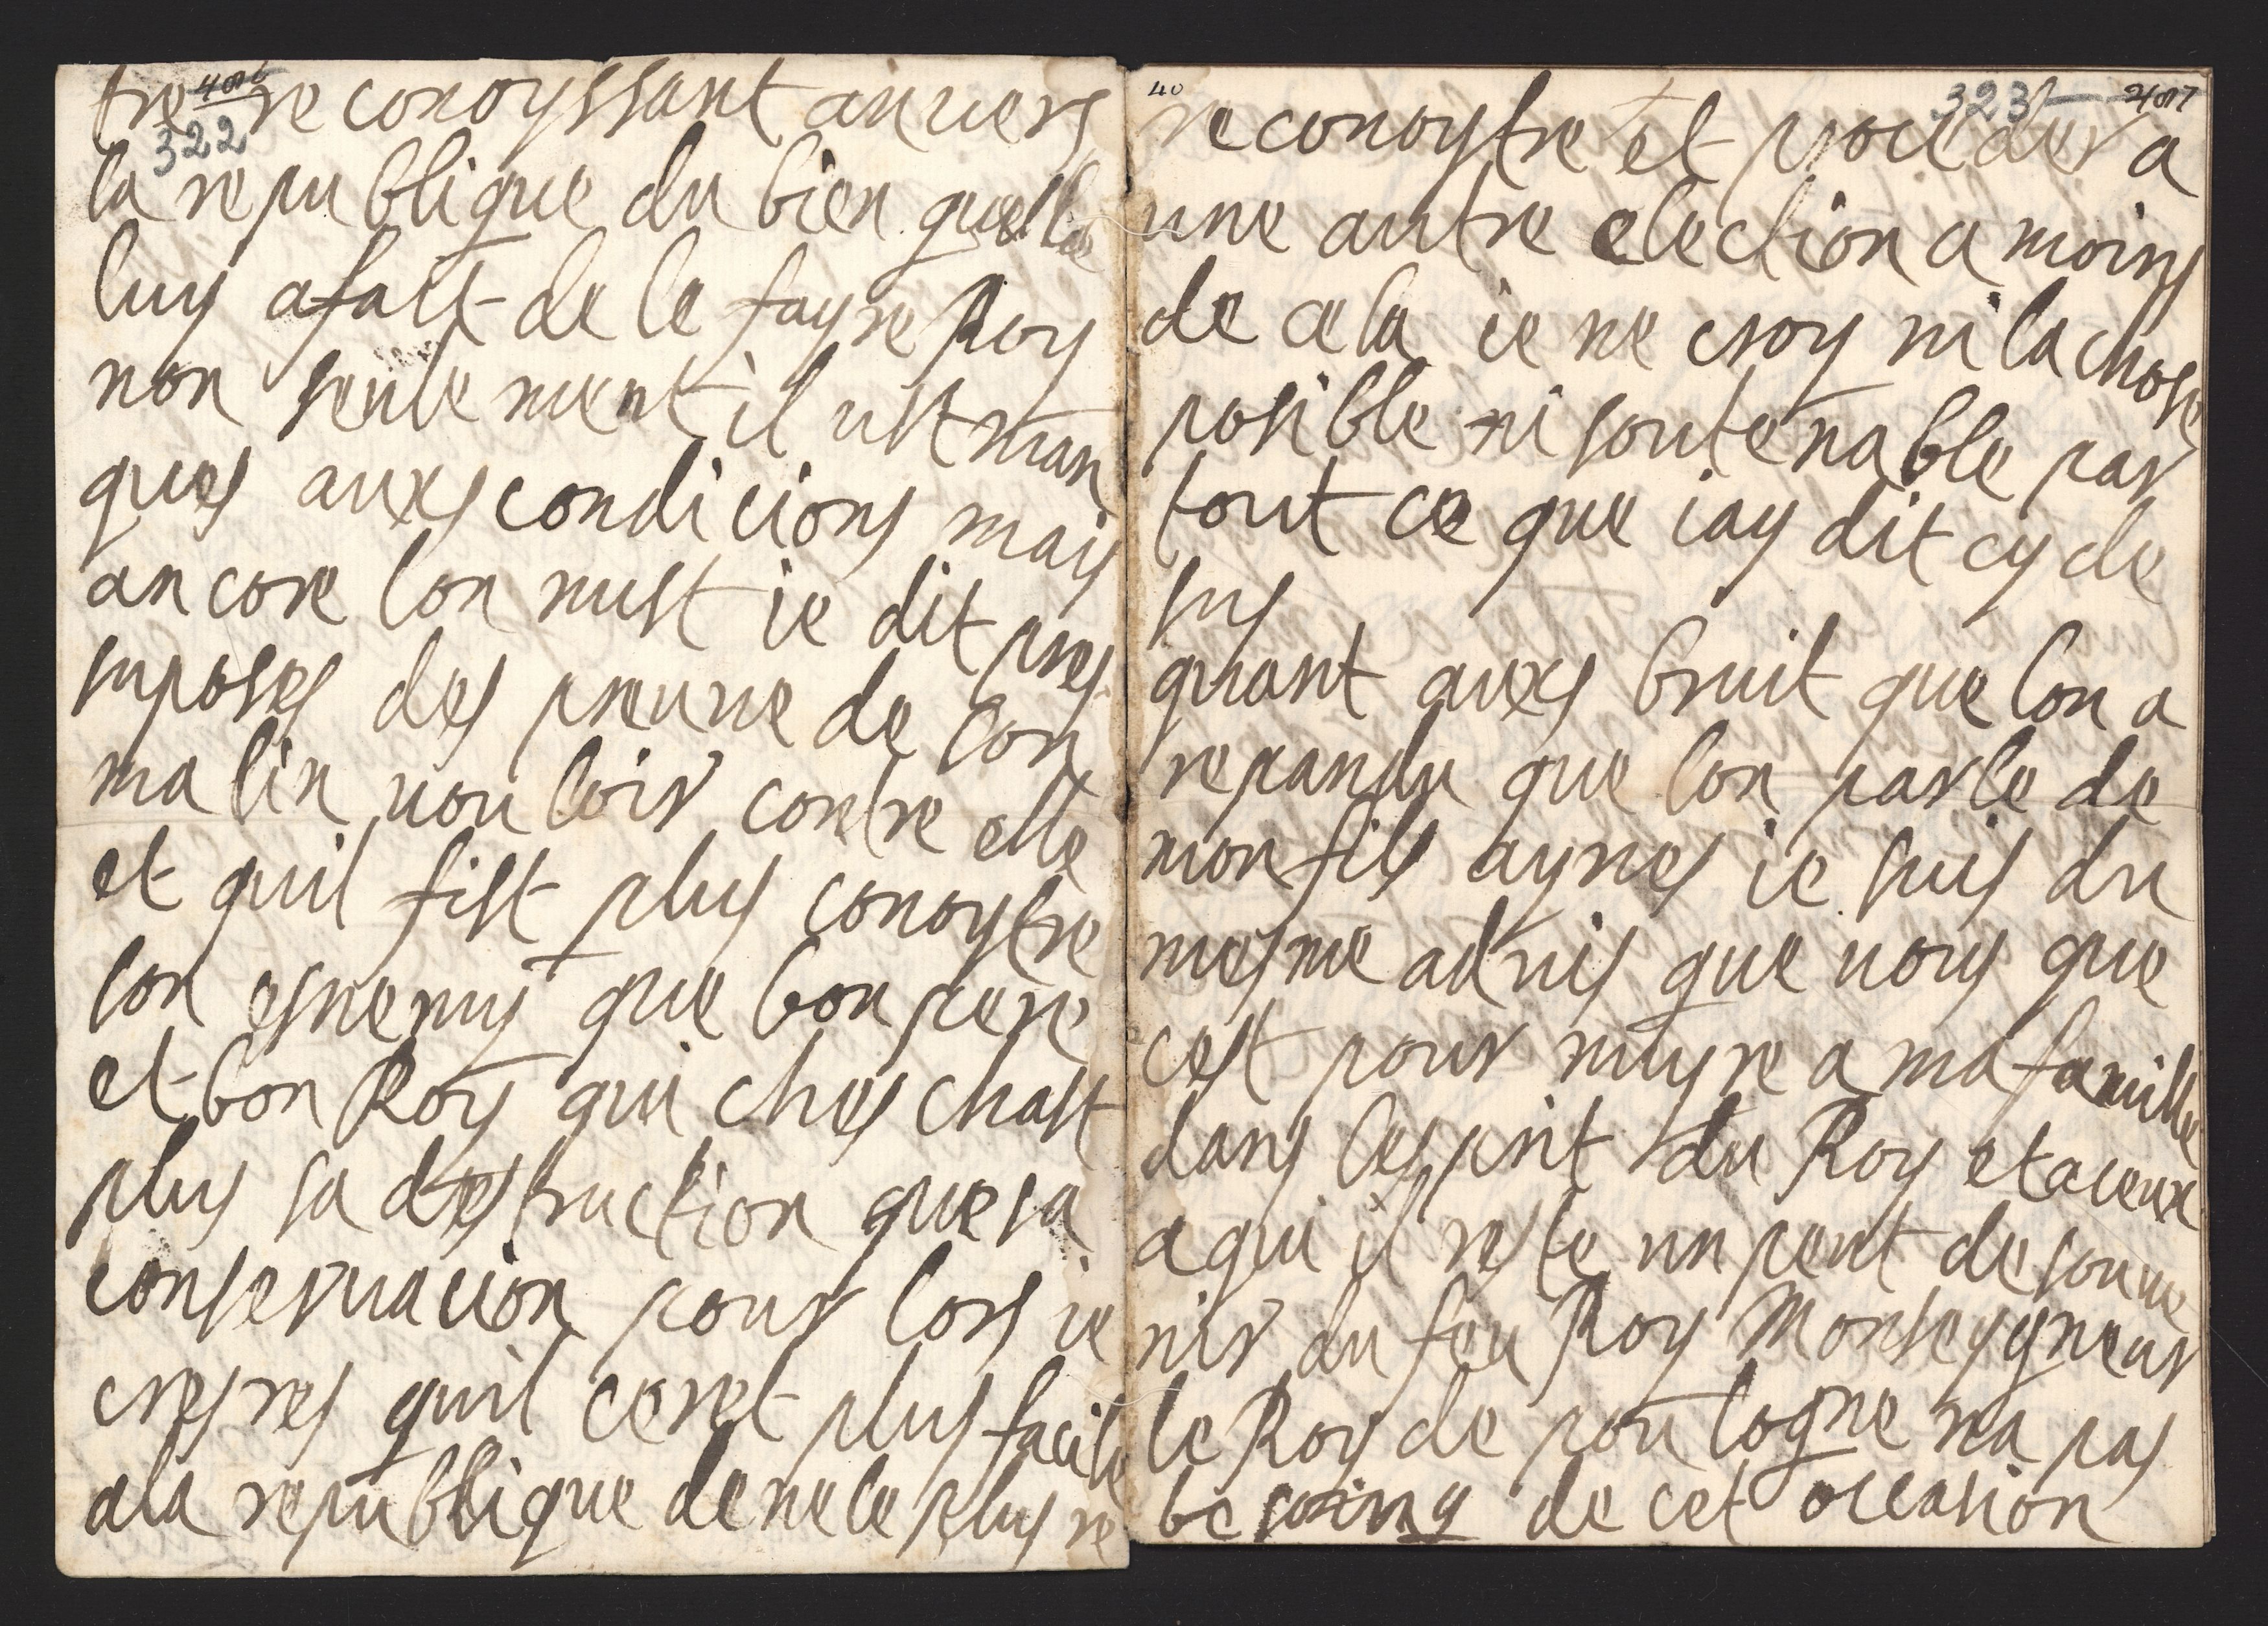 406
322
tre reconoyssant anvers
la republique du bien quelle
luy a fait de le fayre Roy
non seule ment il ust man
ques auxs condicions mais
an core lon nust ie dit pres
suposes des preuve de son
ma lin vou loir contre elle
et quil fist plus conoytre
son esnemy que bon pere
et bon Roy qui ches chast
plus sa destruction que sa
conservacion pour lors ie
cresres quil ceret plus facile
a la republique de ne le plus re
40
323
407
reconoytre et proceder a
une autre election a moins
de cela ie ne croy ni la chose
posible ni soutenable par
tout ce que iay dit cy de
sus
quant auxs bruit que lon a
repandu que lon parle de
mon fils aynes ie suis du
mesme advis que vous que
cest pour nuyre a ma famille
dans lesprit du Roy et a ceux
a qui il reste un peut de souve
nir du feu Roy Monseygneur
le Roy de poulogne na pas
be soing de cet occasion